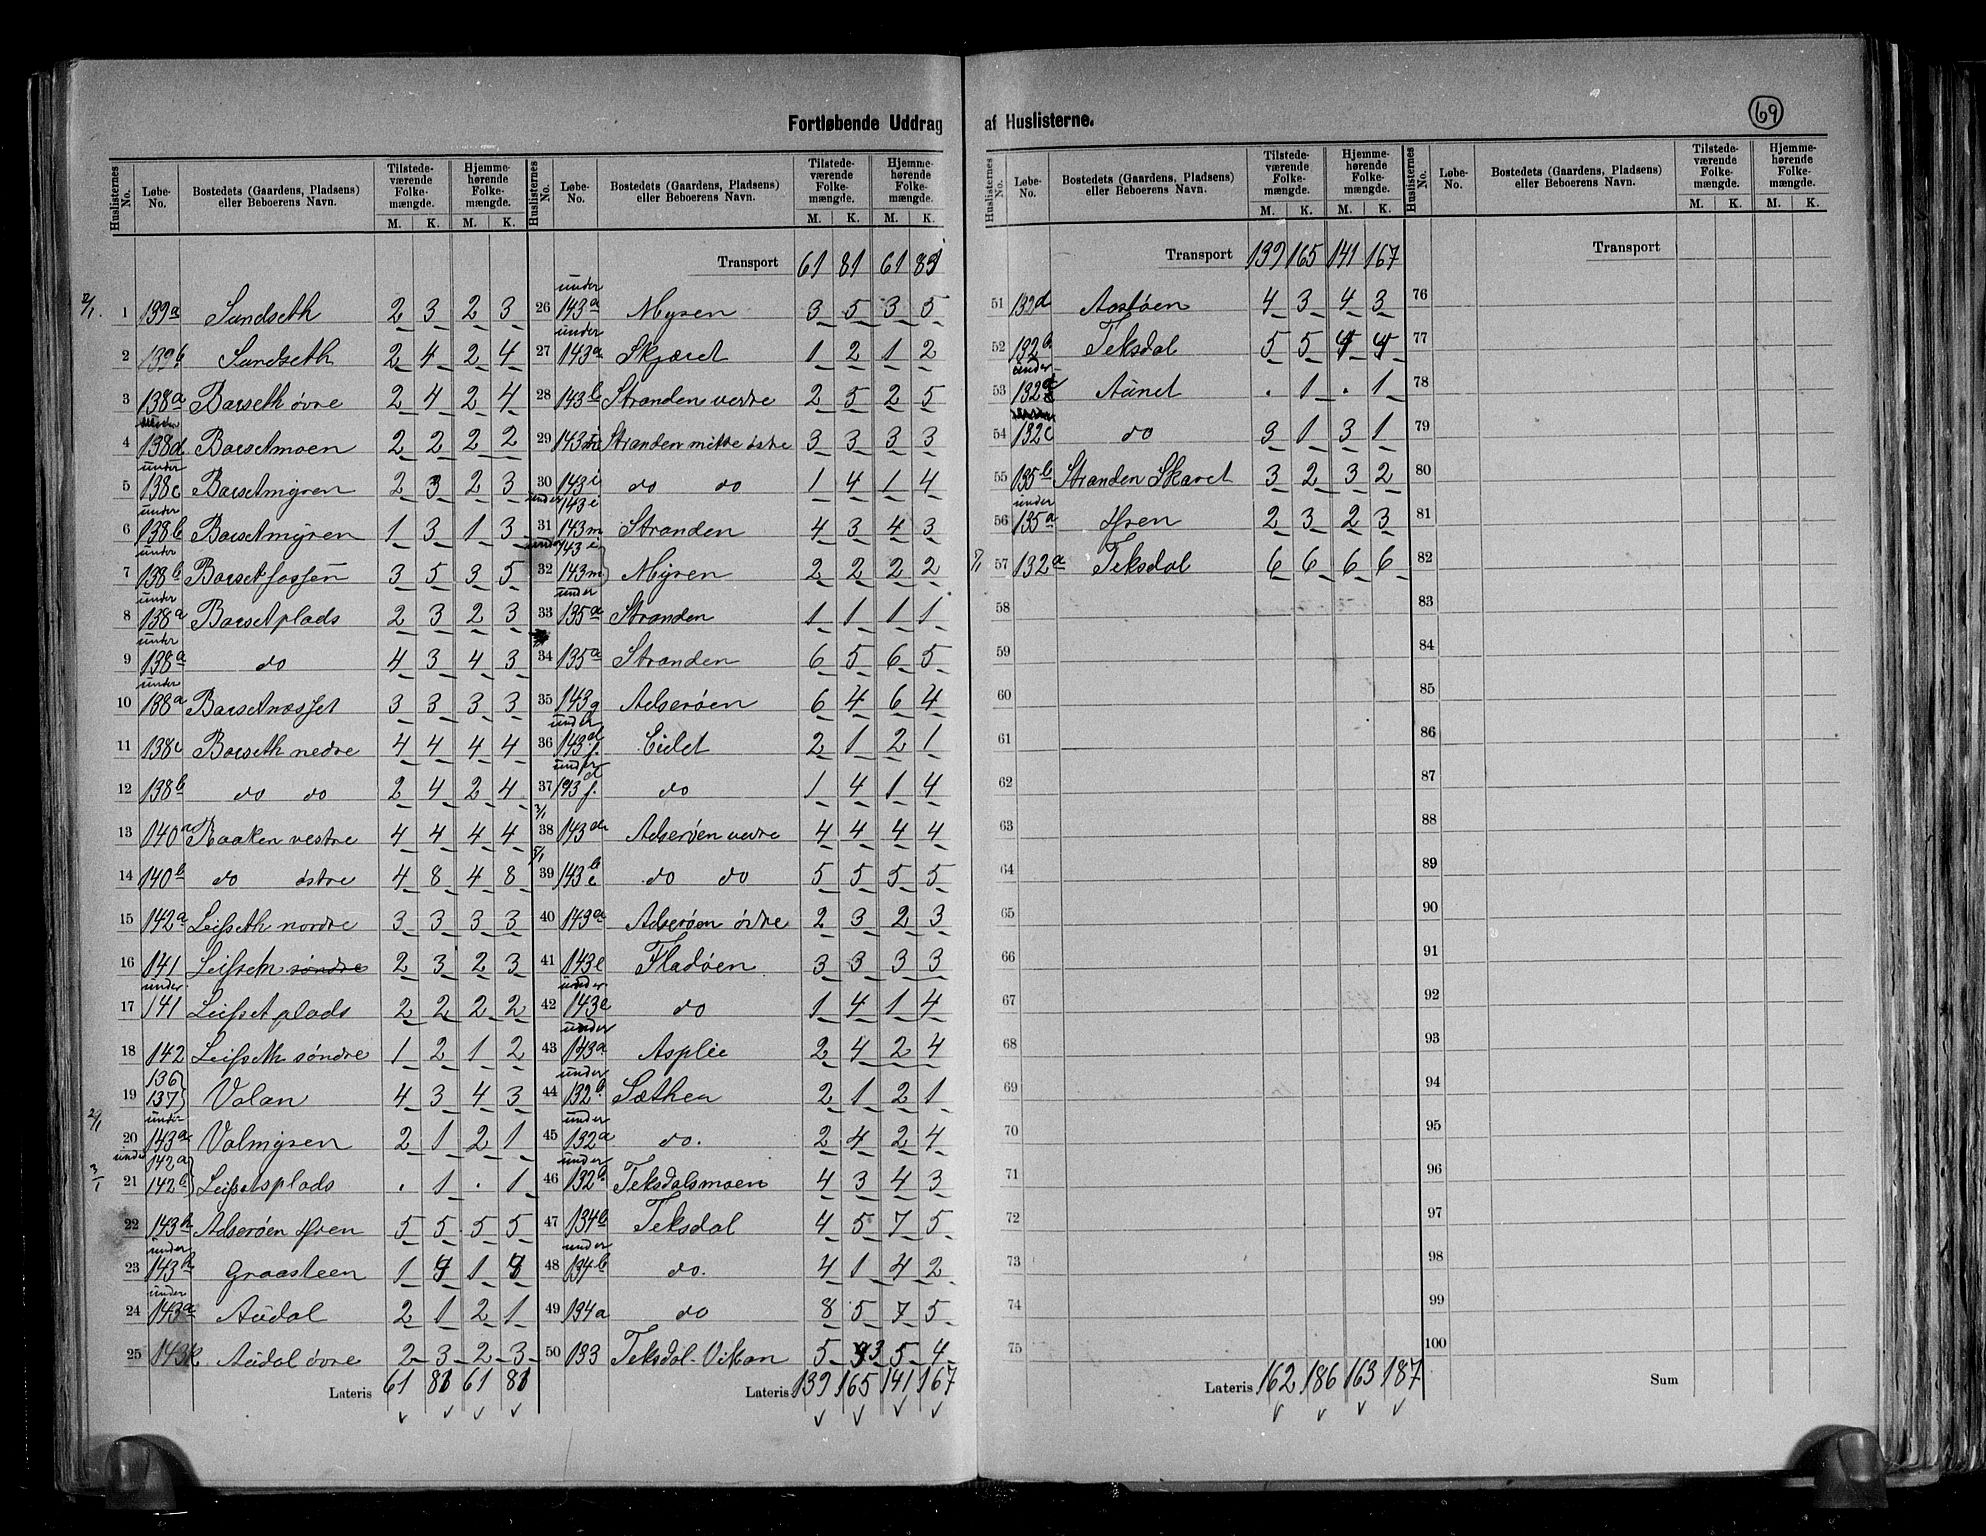 Fortløbende Uddrag af Huslisterne.
69
Huslisternes No. Løbe-No. Bostedets (Gaardens, Pladsens) eller Beboerens Navn. Tilstede-værende Folke-mængde. M. K. Hjemme-hørende Folke-mængde. M. K.
2/1. 1 139a Sandseth 2 3 2 3
2 139b Sandseth 2 4 2 4
3 138a Barseth övre 2 4 2 4
under
4 138d Barsetmoen 2 2 2 2
under
5 138c Barsetmyren 2 3 2 3
under
6 138b Barsetmyren 1 3 1 3
under
7 138b Barsetfossen 3 5 3 5
under
8 138a Barsetplads 2 3 2 3
under
9 138a do 4 3 4 3
under
10 138a Barsetnæsset 3 3 3 3
11 138c Barseth nedre 4 4 4 4
12 138b do do 2 4 2 4
13 140a Raaken vestre 4 4 4 4
14 140b do östre 4 8 4 8
15 142a Leifseth nordre 3 3 3 3
16 141 Leifseth søndre 2 3 2 3
under
17 141 Leifset plads 2 2 2 2
18 142 Leifseth söndre 1 2 1 2
19 136 137 Volan 4 3 4 3
2/1 under
20 143a Volmyren 2 1 2 1
under 142a
3/1 21 142b Leifsetsplads . 1 . 1
22 143h Adserøen Hren 5 5 5 5
under
23 143h Graasteen 1 1
under
24 143a Audal 2 1 2 1
25 143k Audal övre 2 3 2 3
Lateris 61 81 61 81
Huslisternes No. Løbe-No. Bostedets (Gaardens, Pladsens) eller Beboerens Navn. Tilstede-værende Folke-mængde. M. K. Hjemme-hørende Folke-mængde. M. K.
Transport 61 81 61 81
under
26 143a Myren 3 5 3 5
under
27 143a Skjæret 1 2 1 2
28 143b Stranden vestre 2 5 2 5
29 143m Stranden mitre östre 3 3 3 3
30 143i do do 1 4 1 4
under 143i
31 143m Stranden 4 3 4 3
under 143i
32 143m Myren 2 2 2 2
under
33 135a Stranden 1 1 1 1
34 135a Stranden 6 5 6 5
35 143g Adserøen 6 4 6 4
under
36 143 d f. Eidet 2 1 2 1
under
37 143 d f. do 1 4 1 4
3/1
38 143d Adserøen vestre 4 4 4 4
5/1
39 143 b c do do 5 5 5 5
40 143a Adserøen östre 2 3 2 3
41 143e Fladøen 3 3 3 3
under
42 143e do 1 4 1 4
under
43 143a Asplie 2 4 2 4
under
44 132b Sæther 2 1 2 1
under
45 132a do. 2 4 2 4
under
46 132b Teksdalsmoen 4 3 4 3
47 134b Teksdal 4 5 7 5
under
48 134b do. 4 1 4 2
49 134a do 8 5 7 5
50 133 Teksdal-Vikan 5 3 5 4
Lateris 139 165 141 167
Huslisternes No. Løbe-No. Bostedets (Gaardens, Pladsens) eller Beboerens Navn. Tilstede-værende Folke-mængde. M. K. Hjemme-hørende Folke-mængde. M. K.
Transport 139 165 141 167
51 139d Aostøen 4 3 4 3
52 132b Teksdal 5 5 4 4
under
53 132 Aunet . 1 . 1
54 132c do 3 1 3 1
55 135b Stranden Skaret 3 2 3 2
under
56 135a Hren 2 3 2 3
7/1 57 132a Teksdal 6 6 6 6
58
59
60
61
62
63
64
65
66
67
68
69
70
71
72
73
74
75
Lateris 162 186 163 187
Huslisternes No. Løbe-No. Bostedets (Gaardens, Pladsens) eller Beboerens Navn. Tilstede-værende Folke-mængde. M. K. Hjemme-hørende Folke-mængde. M. K.
Transport
76
77
78
79
80
81
82
83
84
85
86
87
88
89
90
91
92
93
94
95
96
97
98
99
100
Sum